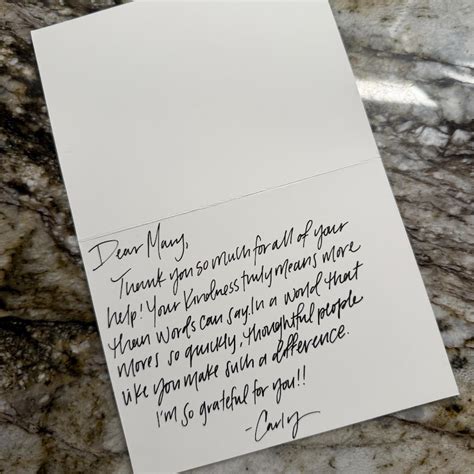 Dear Mary,
Thank you so much for all of your
help! Your kindness truly means more
than words can say. In a world that
moves so quickly, thoughtful people
like you make such a difference.
I'm so grateful for you!!
- Carly